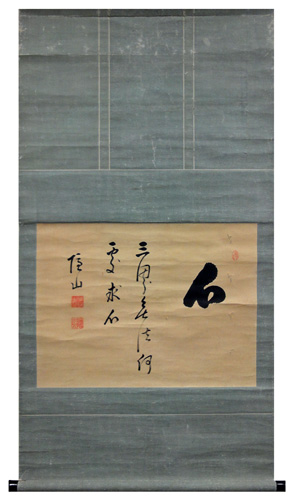 心
三界無法何
處求心
隱山